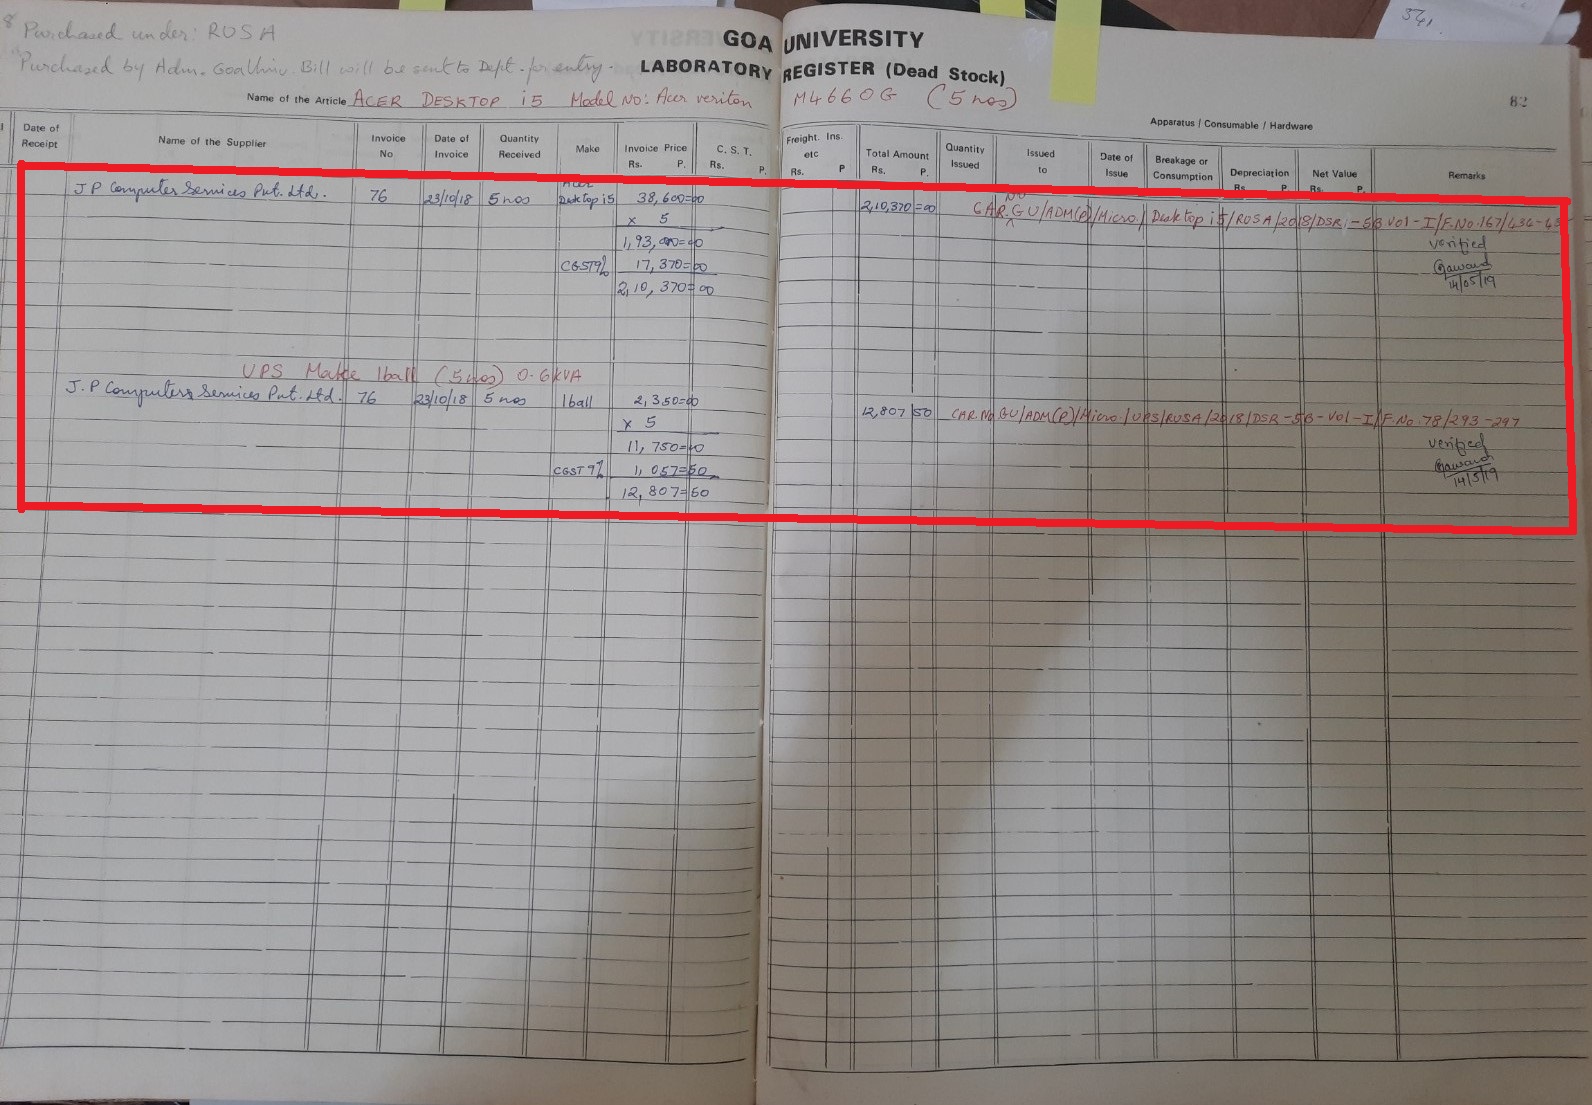 Purchased under: RUSA
Purchased by Adm. Goa Univ. Bill will be sent to Dept. for entry.
GOA UNIVERSITY
LABORATORY REGISTER (Dead Stock)
Name of the Article ACER DESKTOP i5 Model No: Acer veriton M4660G (5 nos)
82
Apparatus / Consumable / Hardware
Date of Receipt Name of the Supplier Invoice No Date of Invoice Quantity Received Make Invoice Price Rs. P. C. S. T. Rs. P. Freight. Ins. etc Rs. P Total Amount Rs. P. Quantity Issued Issued to Date of Issue Breakage or Consumption Depreciation Rs P. Net Value Rs. P. Remarks
J P Computer Services Pvt. Ltd. 76 23/10/18 5 nos Acer Desktop i5 38,600=00 2,10,370=00 CAR. No GU/ADM(P)/Micro/Desktop i5/RUSA/2018/DSR-5B Vol-I/F.No.167/434-
x 5
1,93,000=00 verified
CGST 9% 17,370=00
2,10,370=00 14/05/19
UPS Make Iball (5 nos) 0.6 KVA
J.P Computers Services Pvt. Ltd. 76 23/10/18 5 nos Iball 2,350=00 12,807 50 CAR. No GU/ADM(P)/Micro/UPS/RUSA/2018/DSR-5B-Vol-I/F.No.78/293-297
x 5
11,750=00 verified
CGST 9% 1,057=50
12,807=50 14/5/19